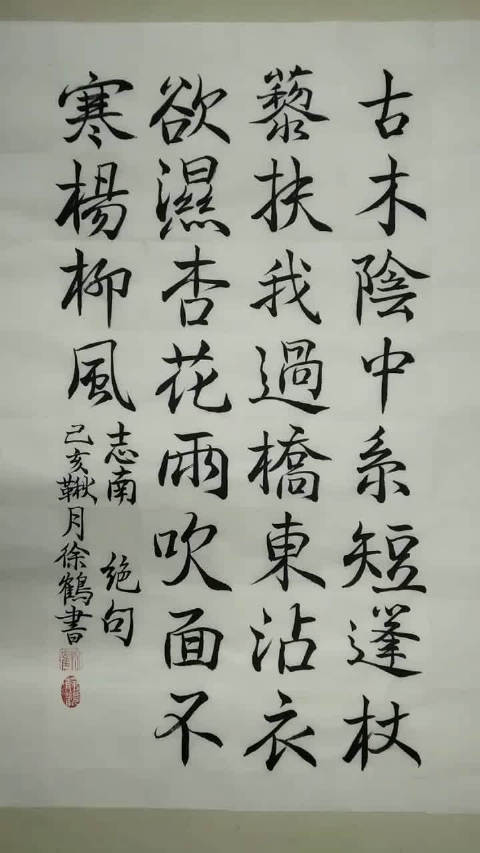 古木陰中系短蓬杖
藜扶我過橋東沾衣
欲濕杏花雨吹面不
寒楊柳風
志南 絕句
己亥鞦月徐鶴書